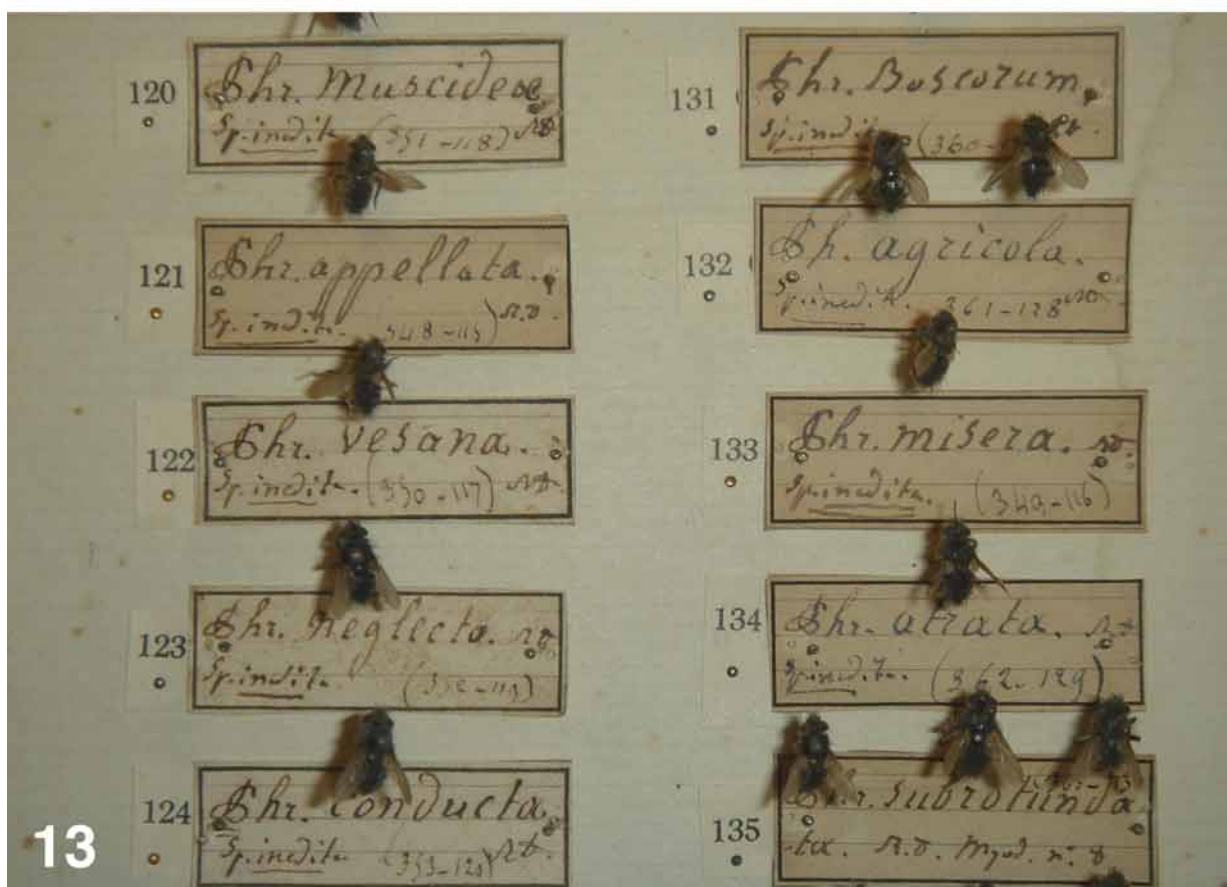 120
Phr. Muscideæ
Sp. inedita (351-118) R.D.
121
Phr. appellata.
Sp. inedita. 348-115) R.D.
122
Phr. vesana.
Sp. inedita. (350-117) R.D.
123
Phr. neglecta. R.D.
Sp. inedita. (352-119)
124
Phr. conducta
Sp. inedita (353-120) R.D.
131
Phr. Boscorum.
Sp. inedit (360-
132
Ph. agricola.
Sp. inedit. 361-128 R.D.
133
Phr. misera. R.D.
Sp. inedita. (349-116)
134
Phr. atrata. R.D.
Sp. inedita. (362-129)
135
Phr. subrotunda
-ta. R.D. Myod. n. 8.
13